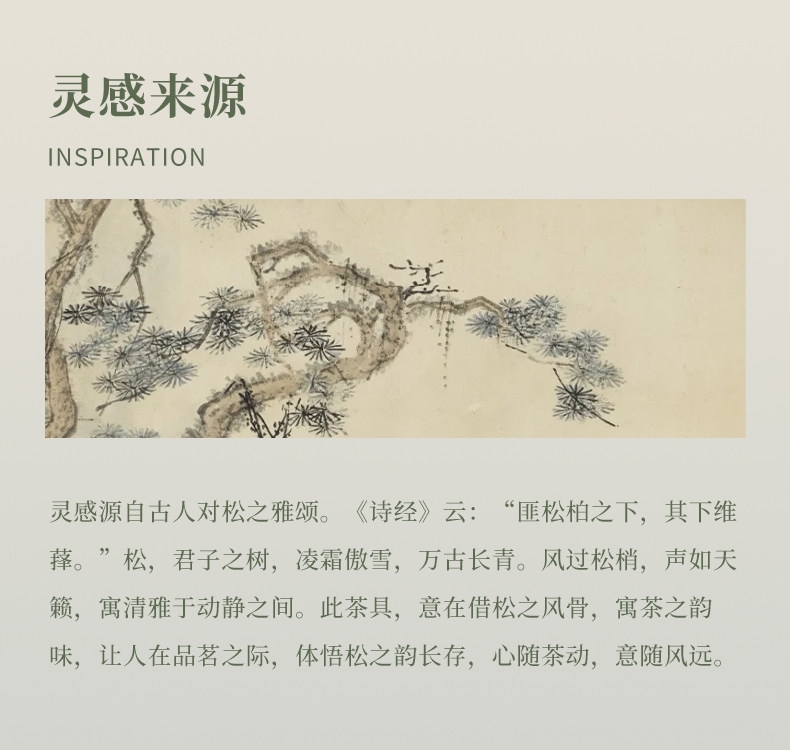 灵感来源
INSPIRATION
灵感源自古人对松之雅颂。《诗经》云：“匪松柏之下，其下维
萚。”松，君子之树，凌霜傲雪，万古长青。风过松梢，声如天
籁，寓清雅于动静之间。此茶具，意在借松之风骨，寓茶之韵
味，让人在品茗之际，体悟松之韵长存，心随茶动，意随风远。